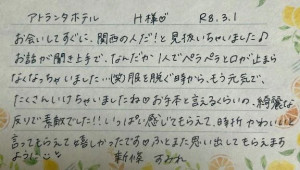 アトランタホテル H様♡ R8.3.1
お会いしてすぐに、関西の人だ!と見抜いちゃいました♪
お話が聞き上手で、なんだか1人でペラペラと口が止まら
なくなっちゃいました…(笑)服を脱ぐ時から、もう元気で、
たくさんいけちゃいましたね♡お手本と言えるくらいの、綺麗な
反りで素敵でした!!いっぱい感じてもらえて、時折かわいいと
言ってもらえて嬉しかったです♡ふとまた思い出してもらえます
ように 新人 すみれ